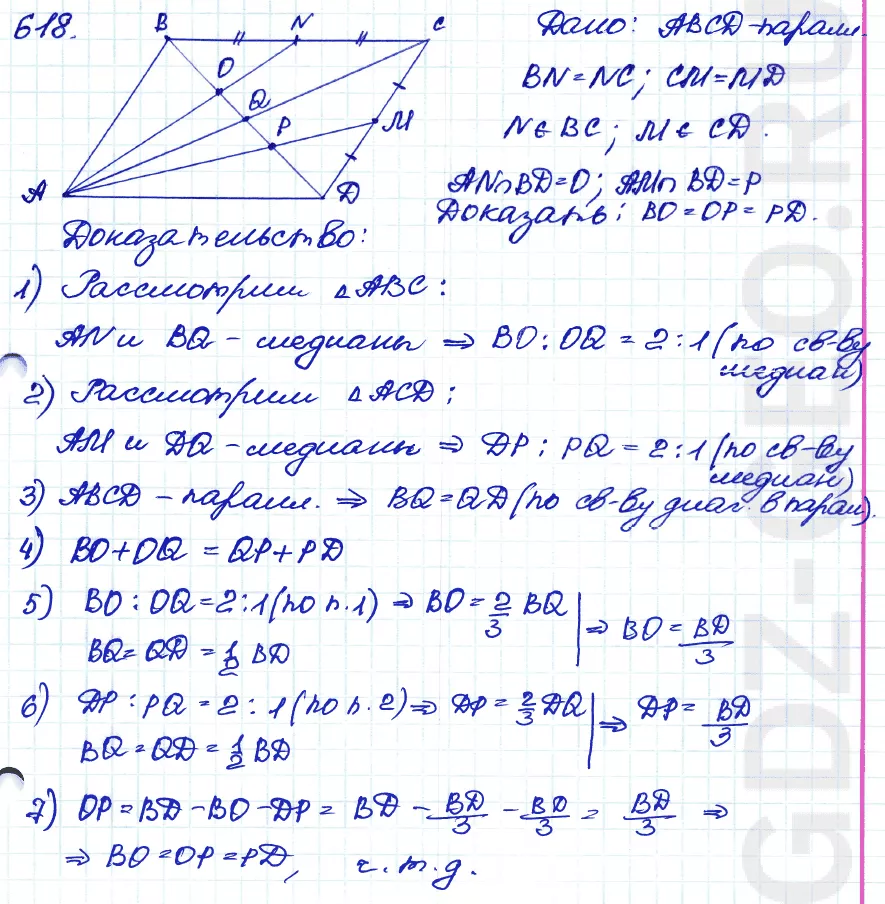 618.
B N C
O
Q
P M
A D
Дано: ABCD-парал.
BN=NC; CM=MD
N∈BC; M∈CD.
AN∩BD=O; AM∩BD=P
Доказать: BO=OP=PD.
Доказательство:
1) Рассмотрим △ABC:
AN и BQ - медианы ⇒ BO:OQ = 2:1 (по св-ву медиан)
2) Рассмотрим △ACD;
AM и DQ - медианы ⇒ DP; PQ = 2:1 (по св-ву медиан)
3) ABCD - парал. ⇒ BQ=QD (по св-ву диаг. в парал).
4) BO+OQ = QP+PD
5) BO:OQ=2:1 (по п.1) ⇒ BO=2/3 BQ | ⇒ BO = BD/3
BQ=QD=1/2 BD
6) DP:PQ=2:1 (по п.2) ⇒ DP=2/3 DQ | ⇒ DP= BD/3
BQ=QD=1/2 BD
7) OP=BD-BO-DP= BD - BD/3 - BD/3 = BD/3 ⇒
⇒ BO=OP=PD, ч.т.д.
GDZ-GEO.RU